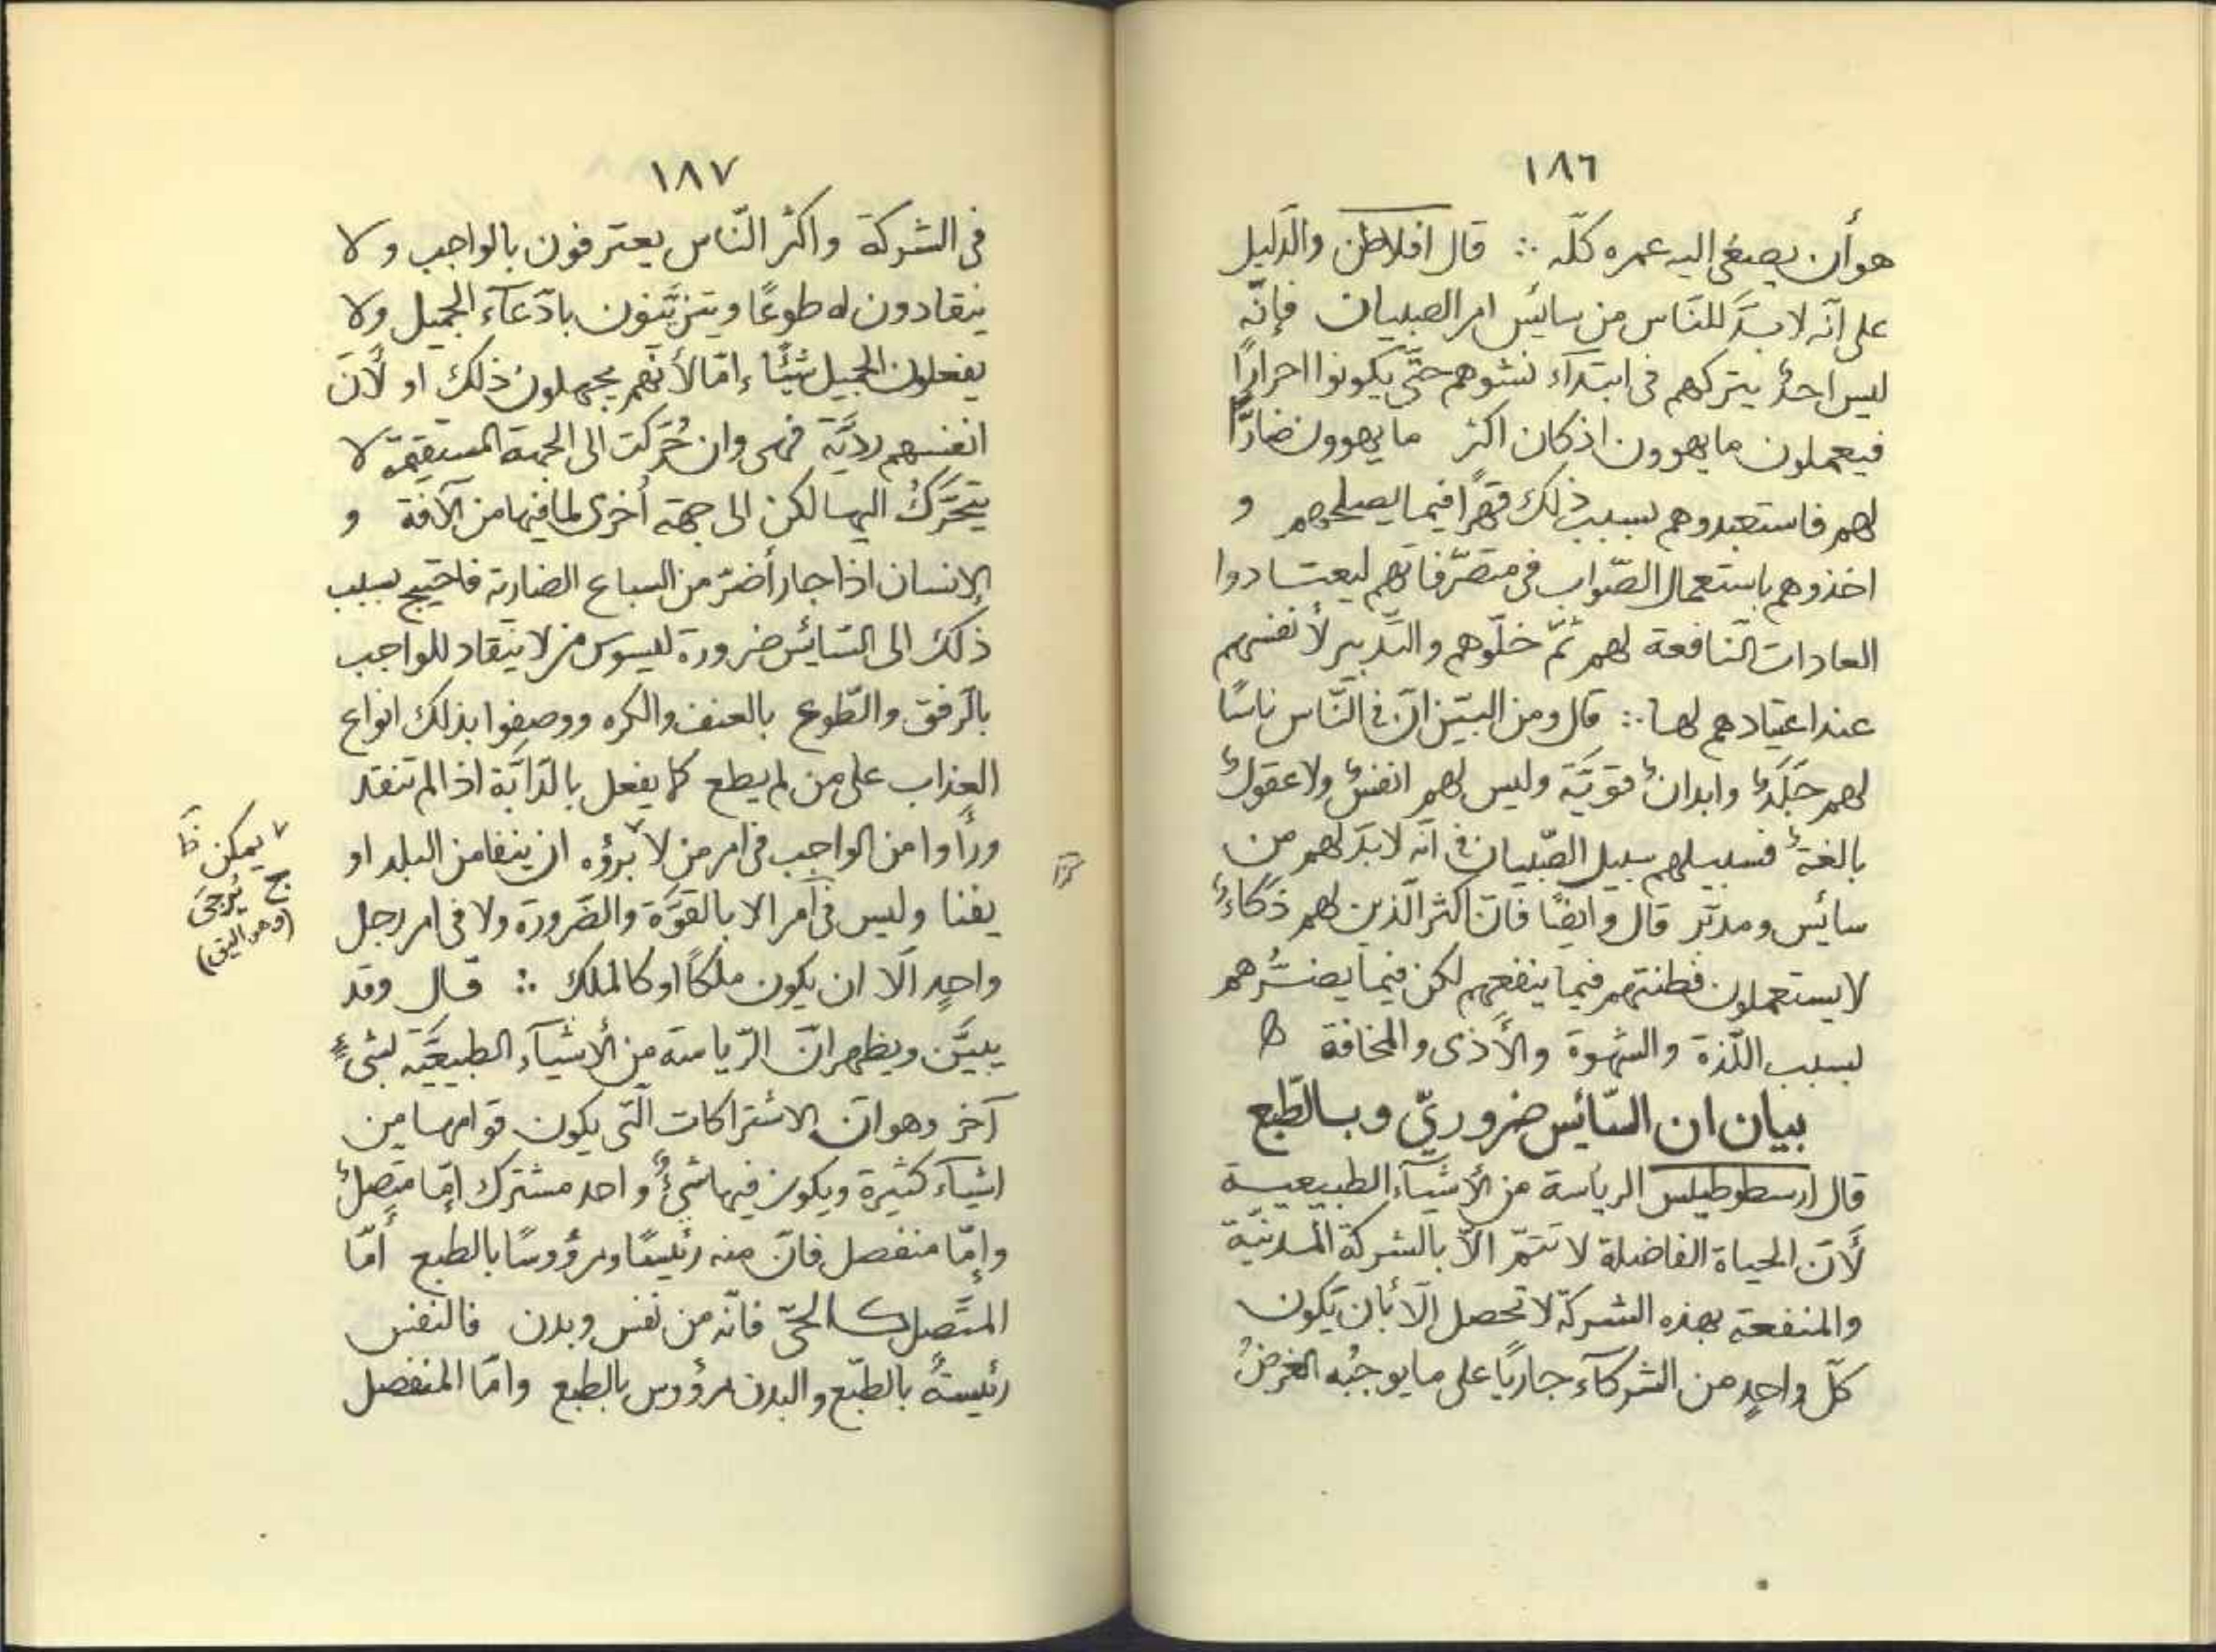 ١٨٦
هو أن يصغى اليه عمره كلّه ∴ قال افلاطن والدّليل
على انّه لا بدّ للنّاس من سائس امر الصبيان فإنّه
ليس احدٌ يتركهم فى ابتدآء نشوهم حتّى يكونوا احرارًا
فيعملون ما يهوون اذ كان اكثر ما يهوون ضارّا
لهم فاستعبدوهم بسبب ذلك قهرًا فيما يصلحهم و
اخذوهم باستعمال الصّواب فى متصرّفاتهم ليعتادوا
العادات النّافعة لهم ثمّ خلّوهم والتّدبير لأنفسهم
عند اعتيادهم لها ∴ قال ومن البيّن انّ فى النّاس ناسًا
لهم جَلَدٌ وابدانٌ قويّة وليس لهم انفسٌ ولا عقولٌ
بالغةٌ فسبيلهم سبيل الصّبيان فى انّه لا بدّ لهم من
سائس ومدبّر قال وايضًا فانّ اكثر الّذين لهم ذكاءٌ
لا يستعملون فطنتهم فيما ينفعهم لكن فيما يضرُّهم
بسبب اللّذة والشهوة والأذى والمخافة
بيان ان السّائس ضروريّ وبالطّبع
قال ارسطوطيلس الرياسة من الأشيآء الطبيعية
لأنّ الحياة الفاضلة لا تتمّ الاّ بالشركة المدنيّة
والمنفعة بهذه الشركة لا تحصل الّا بأن يكون
كلّ واحدٍ من الشركآء جاريًا على ما يوجبُه الغرضُ
١٨٧
فى الشركة واكثر النّاس يعترفون بالواجب ولا
ينقادون له طوعًا ويتزيّنون بادّعآء الجميل ولا
يفعلون الجميل شيئًا إمّا لأنّهم يجهلون ذلك او لأنّ
انفسهم رديّة فهى وان حُرّكت الى الجهة المستقيمة لا
يتحَرّكُ اليها لكن الى جهة أخرى لما فيها من الآفة و
الإنسان اذا جار أضرّ من السباع الضارية فاحتيج بسبب
ذلك الى السّائس ضرورة ليسوس من لا ينقاد للواجب
بالرّفق والطّوع بالعنف والكره ووصفوا بذلك انواع
العذاب على من لم يطع كما يفعل بالدّابّة اذا لم تنقد
ورأوا من الواجب فى امر من لا برؤه ان ينفا من البلد او
يفنا وليس فى آمر الا بالقوّة والضّرورة ولا فى امر رجل
واحدٍ الّا ان يكون ملكًا او كالملك ∴ قال وقد
يبيَّن ويظهر انّ الرّياسة من الأشيآء الطبيعيّة لشىءٍ
آخر وهو انّ الاشتراكات الّتى يكون قوامها من
اشيآء كثيرة ويكون فيها شىءٌ واحد مشترك امّا متّصلٌ
وإمّا منفصل فانّ منه رئيسًا ومرؤوسًا بالطبع أمّا
المتّصل كالحىّ فانّه من نفس وبدن فالنفس
رئيسةٌ بالطّبع والبدن مرؤوس بالطبع وامّا المنفصل
يمكن
يُرجى
(وهو اليق)